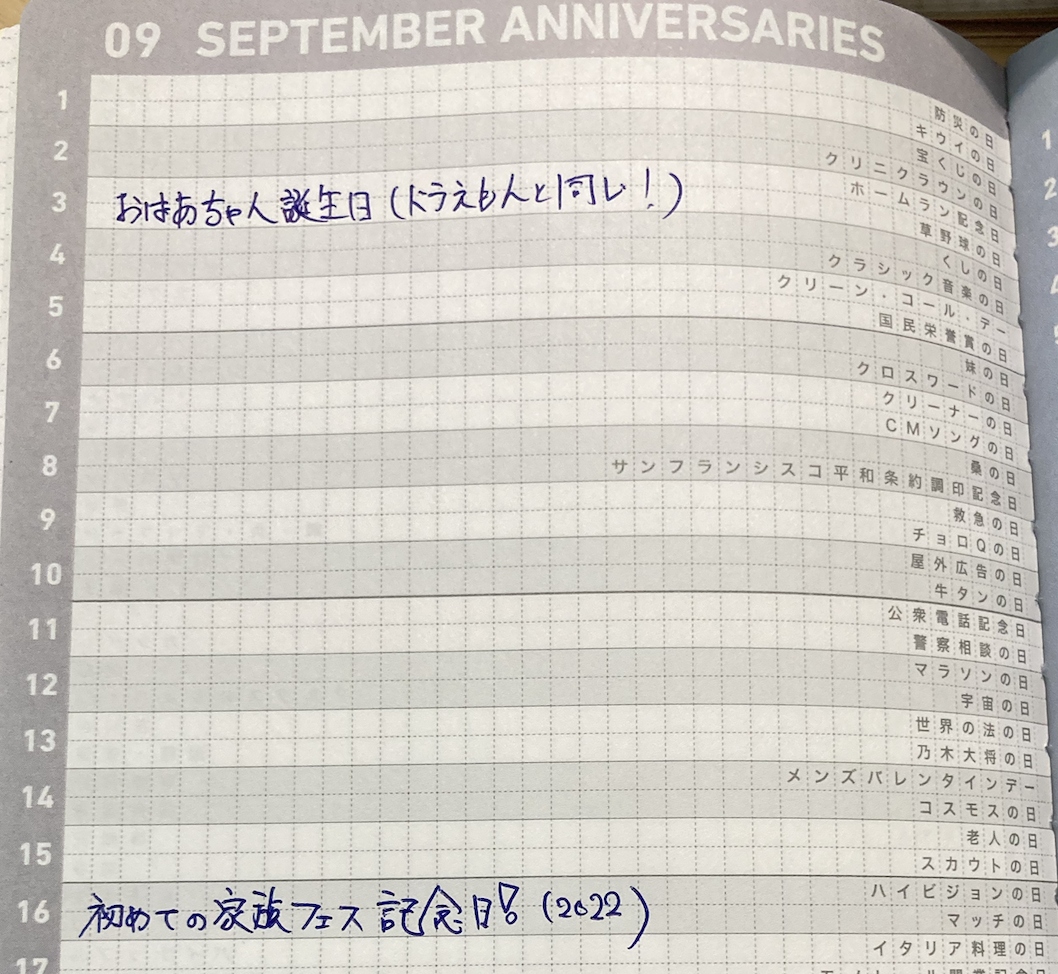 09 SEPTEMBER ANNIVERSARIES
1
防災の日
キウイの日
2
宝くじの日
クリニクラウンの日
3
おばあちゃん誕生日(ドラえもんと同じ!)
ホームラン記念日
草野球の日
4
くしの日
クラシック音楽の日
5
クリーン・コール・デー
国民栄誉賞の日
6
妹の日
クロスワードの日
7
クリーナーの日
CMソングの日
8
桑の日
サンフランシスコ平和条約調印記念日
9
救急の日
チョロQの日
10
屋外広告の日
牛タンの日
11
公衆電話記念日
警察相談の日
12
マラソンの日
宇宙の日
13
世界の法の日
乃木大将の日
14
メンズバレンタインデー
コスモスの日
15
老人の日
スカウトの日
16
初めての家族フェス記念日! (2022)
ハイビジョンの日
マッチの日
17
イタリア料理の日